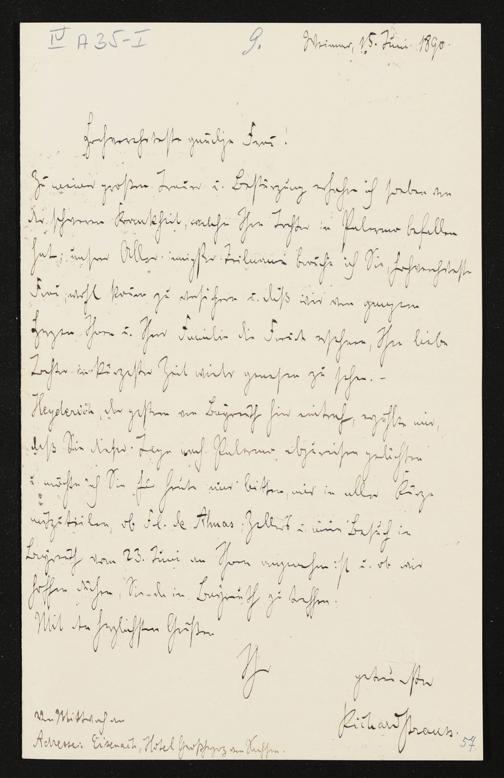 IV A 35-I 9. Weimar, 15. Juni 1890.
Hochverehrteste gnädige Frau!
Zu meiner großen Trauer u. Bestürzung erfahre ich soeben von
der schweren Krankheit, welche Ihre Tochter in Palermo befallen
hat; unser Aller innigster Teilname brauche ich Sie, hochverehrteste
Frau, wohl kaum zu versichern u. daß wir von ganzem
Herzen Ihnen u. Ihrer Familie die Freude ersehnen, Ihre liebe
Tochter in kürzester Zeit wieder genesen zu sehen. –
Heyderich, der gestern von Bayreuth hier eintraf, erzählte mir,
daß Sie dieser Tage nach Palermo abzureisen gedächten
u. möchte ich Sie für heute nur bitten, mir in aller Kürze
mitzuteilen, ob Frl. de Ahnas, Zellers u. mein Besuch in
Bayreuth vom 23. Juni an Ihnen angenehm ist u. ob wir
hoffen dürfen, Sie in Bayreuth zu treffen!
Mit den herzlichsten Grüßen
Ihr getreuester
Richard Strauss.
Von Mittwoch an
Adresse: Eisenach, Hôtel Großherzog von Sachsen.
57